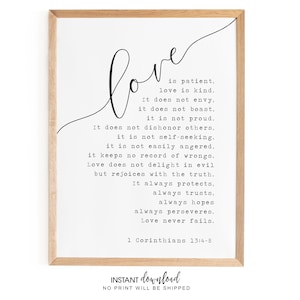 love
is patient,
love is kind.
It does not envy,
it does not boast,
it is not proud.
It does not dishonor others,
it is not self-seeking,
it is not easily angered,
it keeps no record of wrongs.
Love does not delight in evil
but rejoices with the truth.
It always protects,
always trusts,
always hopes
always perseveres.
Love never fails.
1 Corinthians 13:4-8
INSTANT download
NO PRINT WILL BE SHIPPED